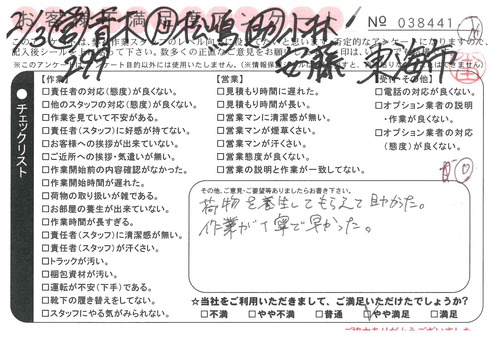 No 038441
チェックリスト
【作業】
□責任者の対応(態度)が良くない。
□他のスタッフの対応(態度)が良くない。
□作業を見ていて不安がある。
□責任者(スタッフ)に好感が持てない。
□お客様への挨拶が出来ていない。
□ご近所への挨拶・気遣いが無い。
□作業開始前の内容確認がなかった。
□作業開始時間が遅れた。
□荷物の取り扱いが雑である。
□お部屋の養生が出来ていない。
□作業時間が長すぎる。
□責任者(スタッフ)に清潔感が無い。
□責任者(スタッフ)が汗くさい。
□トラックが汚い。
□梱包資材が汚い。
□運転が不安(下手)である。
□靴下の履き替えをしてない。
□スタッフにやる気がみられない。
【営業】
□見積もり時間に遅れた。
□見積もり時間が長い。
□営業マンに清潔感が無い。
□営業マンが煙草くさい。
□営業マンが汗くさい。
□営業態度が良くない。
□営業の説明と作業が一致してない。
【受付・その他】
□電話の対応が良くない。
□オプション業者の説明
・作業が良くない。
□オプション業者の対応
(態度)が良くない。
その他、ご意見・ご要望等ありましたらお書き下さい。
荷物を養生してもらえて助かった。
作業が丁寧で早かった。
☆当社をご利用いただきまして、ご満足いただけたでしょうか?
□不満 □やや不満 □普通 □やや満足 □満足
ご協力ありがとうございました